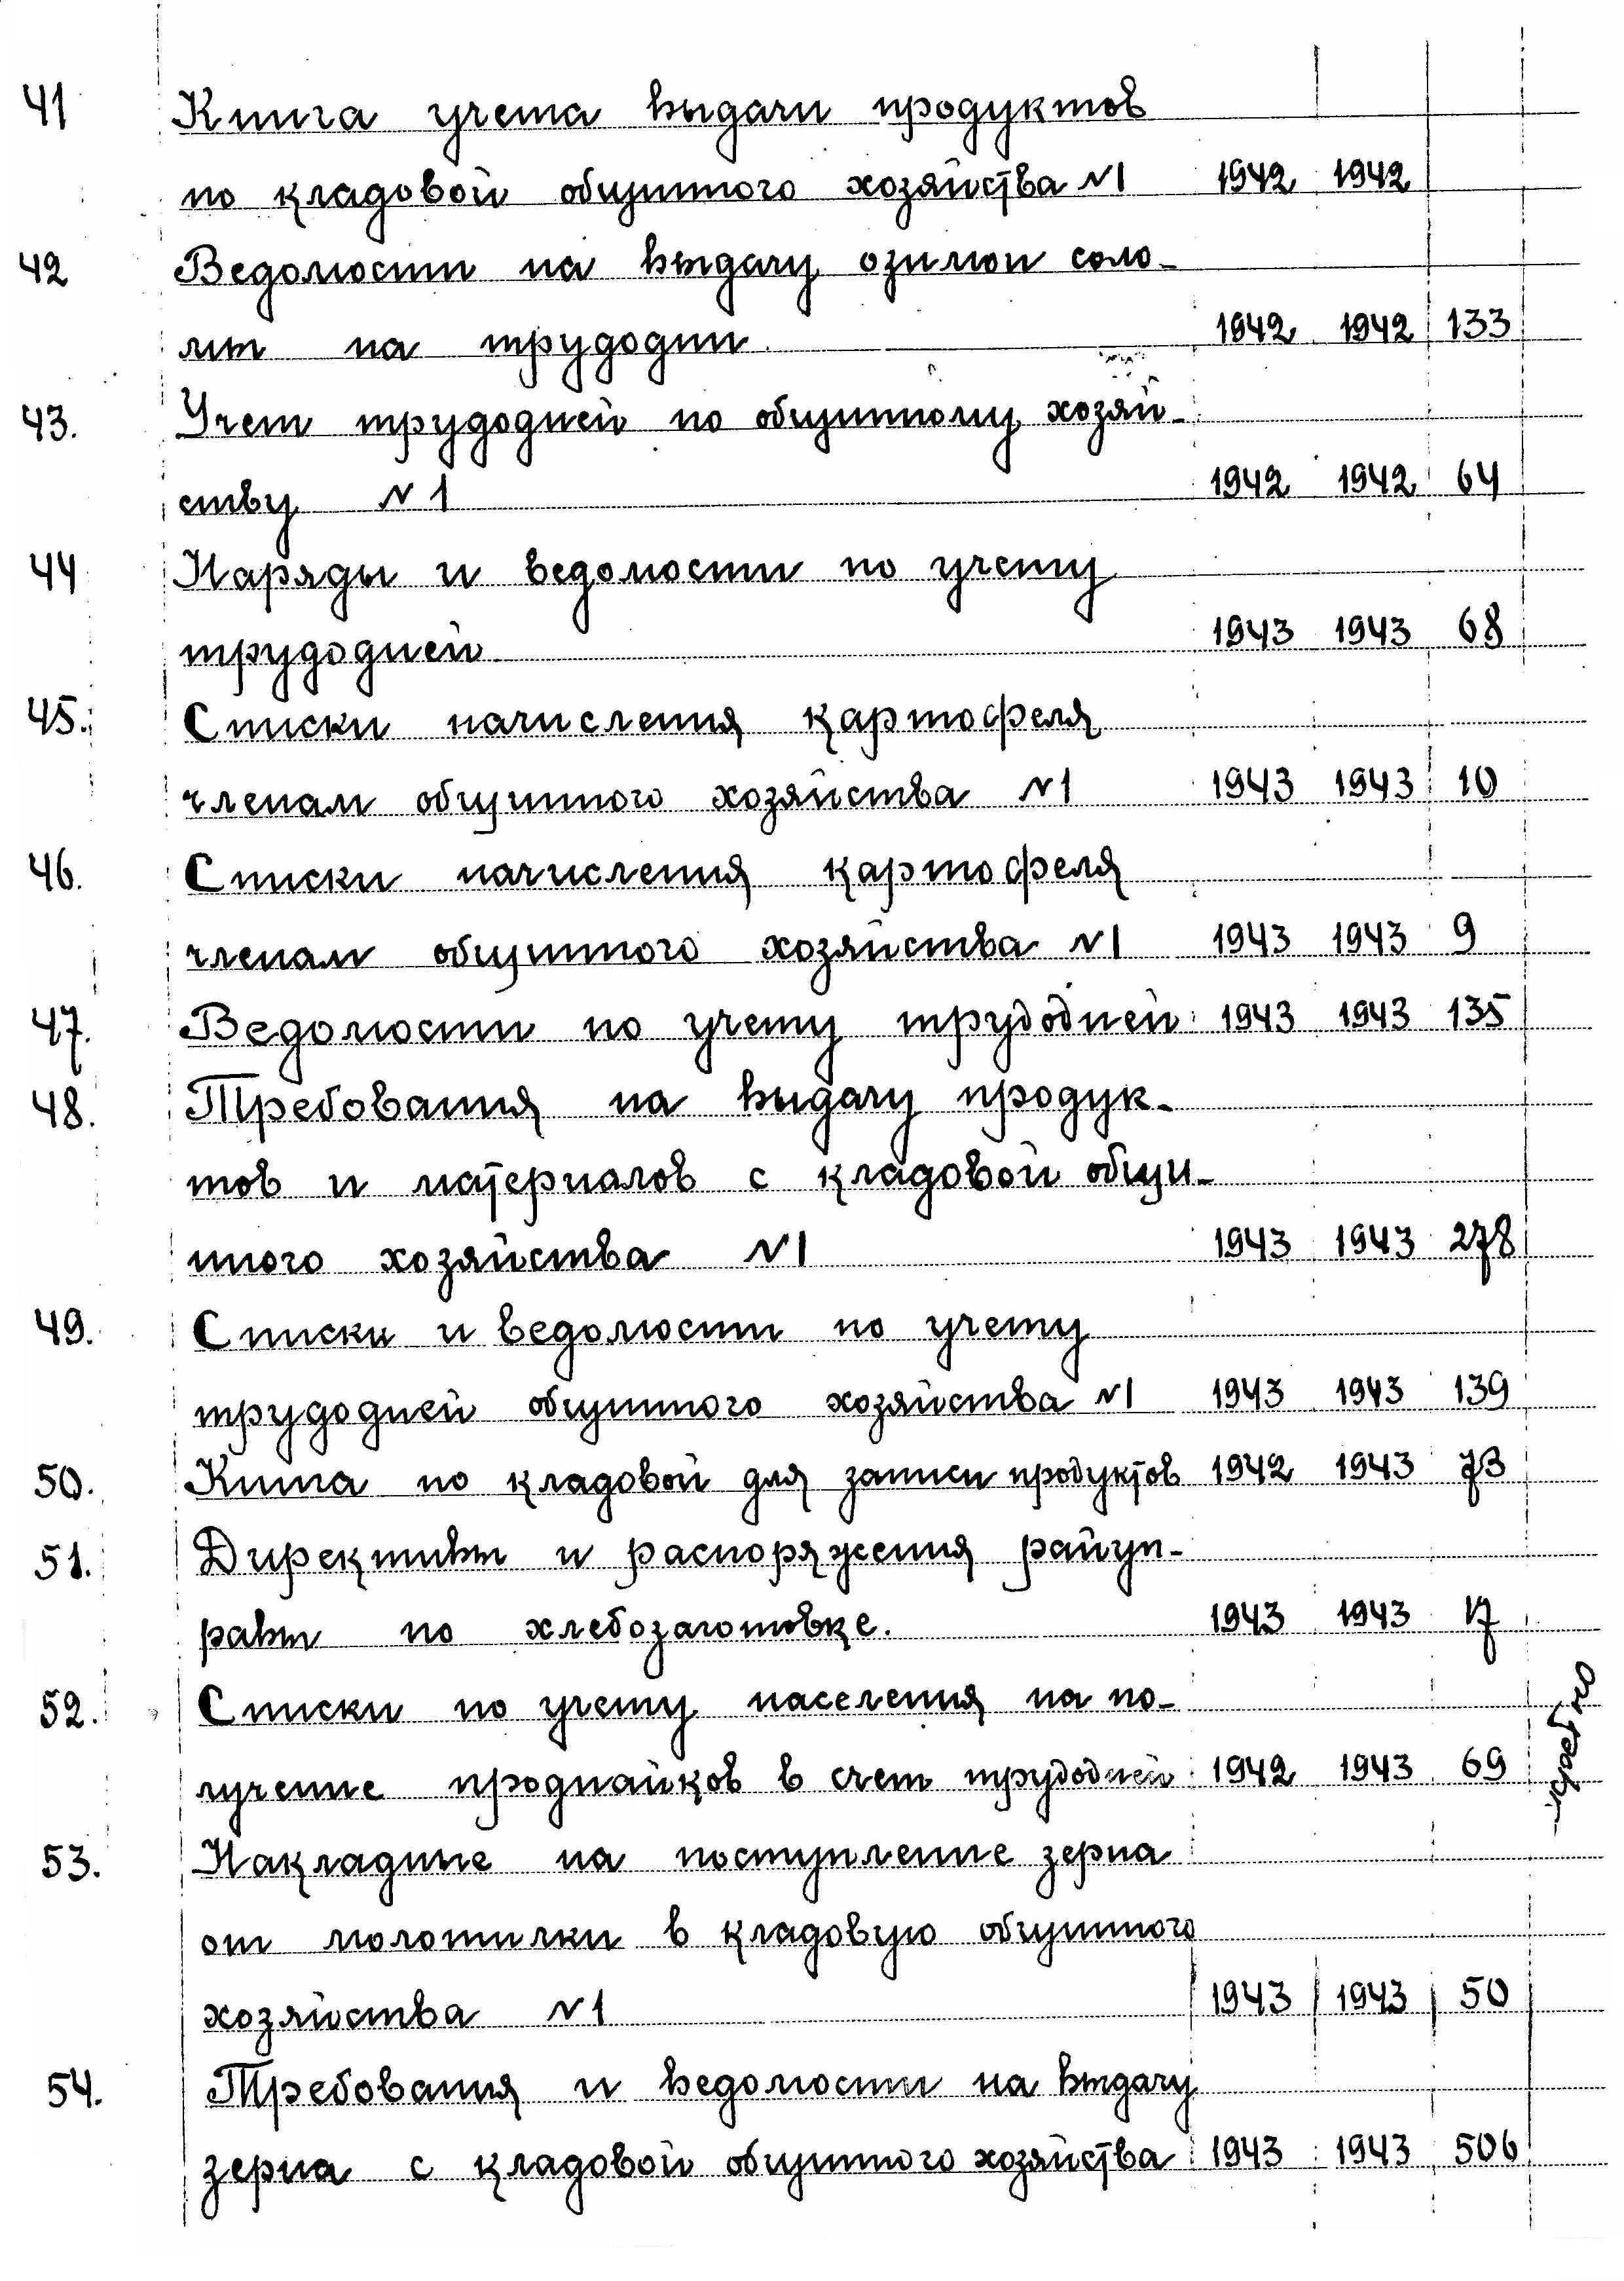 41 Книга учета выдачи продуктов
по кладовой общинного хозяйства N1 1942 1942
42 Ведомости на выдачу озимой соло-
мы на трудодни 1942 1942 133
43. Учет трудодней по общинному хозяй-
ству N 1 1942 1942 64
44 Наряды и ведомости по учету
трудодней 1943 1943 68
45. Списки начисления картофеля
членам общинного хозяйства N1 1943 1943 10
46. Списки начисления картофеля
членам общинного хозяйства N1 1943 1943 9
47. Ведомости по учету трудодней 1943 1943 135
48. Требования на выдачу продук-
тов и материалов с кладовой общи-
нного хозяйства N1 1943 1943 278
49. Списки и ведомости по учету
трудодней общинного хозяйства N1 1943 1943 139
50. Книга по кладовой для записи продуктов 1942 1943 73
51. Директивы и распоряжения райуп-
равы по хлебозаготовке. 1943 1943 17
52. Списки по учету населения на по-
лучение продпайков в счет трудодней 1942 1943 69
53. Накладные на поступление зерна
от молотилки в кладовую общинного
хозяйства N1 1943 1943 50
54. Требования и ведомости на выдачу
зерна с кладовой общинного хозяйства 1943 1943 506